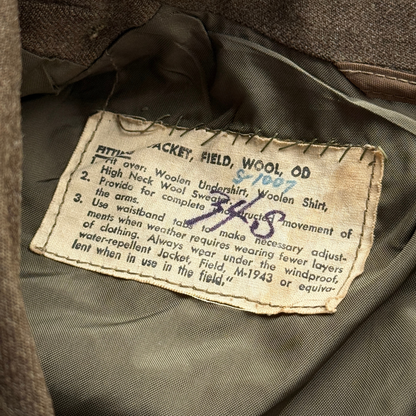 JACKET, FIELD, WOOL, OD
FITTING
S-1007
1. Fit over: Woolen Undershirt, Woolen Shirt,
High Neck Wool Sweater.
2. Provide for complete movement of
the arms.
34S
3. Use waistband to make necessary adjust-
ments when weather requires wearing fewer layers
of clothing. Always wear under the windproof,
water-repellent Jacket, Field, M-1943 or equiva-
lent when in use in the field."